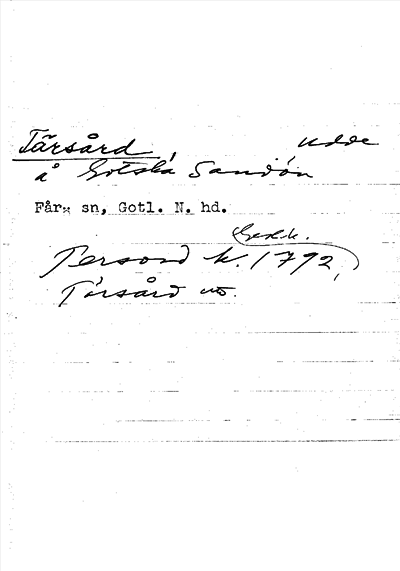 Tärsård, udde
å Gotska Sandön
Får: sn, Gotl. N. hd.
Tersord k. 1792,
Tärsård